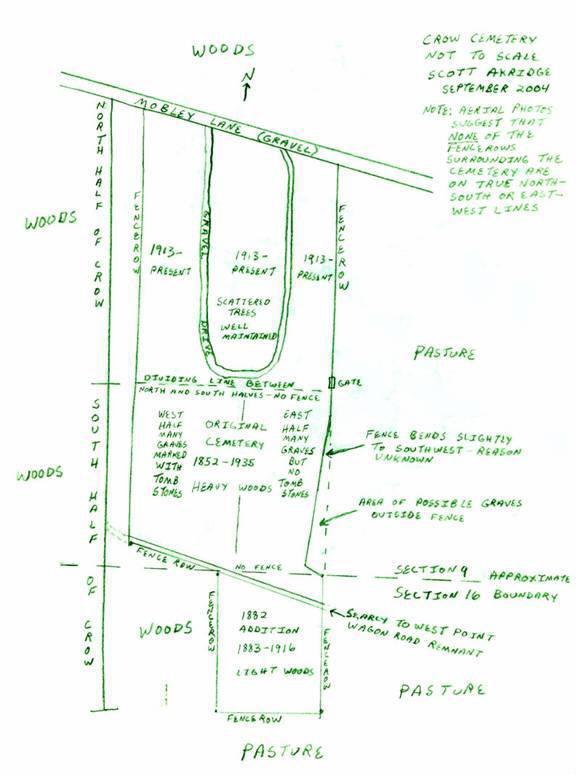 WOODS
N
CROW CEMETERY
NOT TO SCALE
SCOTT AKRIDGE
SEPTEMBER 2004
NOTE: AERIAL PHOTOS
SUGGEST THAT
NONE OF THE
FENCEROWS
SURROUNDING THE
CEMETERY ARE
ON TRUE NORTH-
SOUTH OR EAST-
WEST LINES
MOBLEY LANE (GRAVEL)
NORTH HALF OF CROW
FENCEROW
GRAVEL DRIVE
FENCEROW
WOODS
1913-
PRESENT
1913-
PRESENT
1913-
PRESENT
SCATTERED
TREES
WELL
MAINTAINED
PASTURE
DIVIDING LINE BETWEEN
NORTH AND SOUTH HALVES-NO FENCE
GATE
SOUTH HALF OF CROW
WEST
HALF
MANY
GRAVES
MARKED
WITH
TOMB
STONES
ORIGINAL
CEMETERY
1852-1935
HEAVY WOODS
EAST
HALF
MANY
GRAVES
BUT
NO
TOMB
STONES
FENCE BENDS SLIGHTLY
TO SOUTHWEST-REASON
UNKNOWN
WOODS
AREA OF POSSIBLE GRAVES
OUTSIDE FENCE
FENCE ROW
NO FENCE
SECTION 9 APPROXIMATE
SECTION 16 BOUNDARY
SEARCY TO WEST POINT
WAGON ROAD REMNANT
WOODS
FENCEROW
1882
ADDITION
1883-1916
LIGHT WOODS
FENCEROW
PASTURE
FENCE ROW
PASTURE